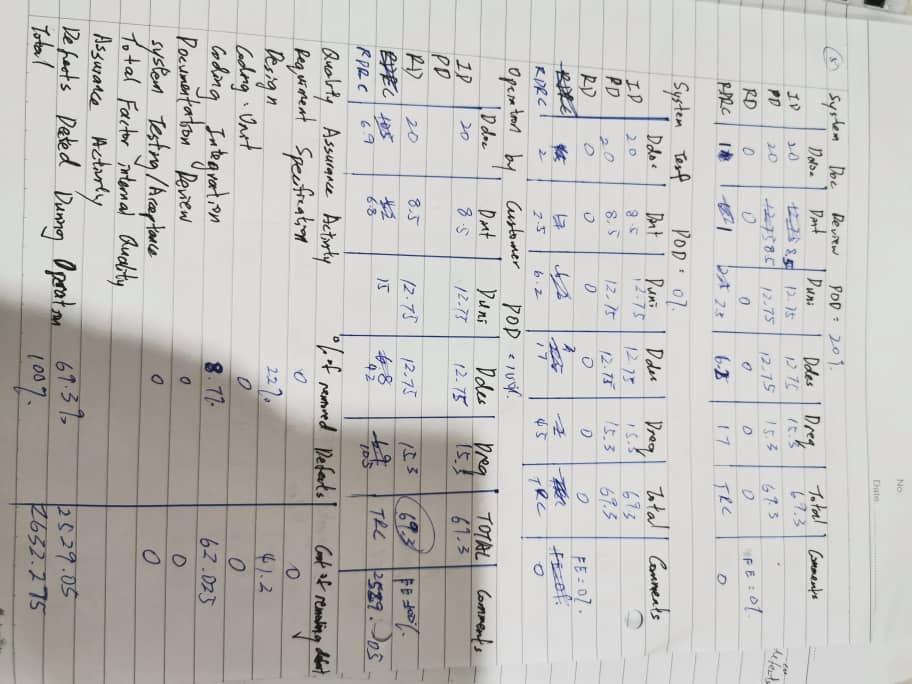 No
Date
(5) System Doc Review POD = 20%
Ddoc Dmt Duni Ddes Dreq Total Comments
ID 20 8.5 12.75 12.75 15.3 69.3
PD 20 8.5 12.75 12.75 15.3 69.3
RD 0 0 0 0 0 0 FE = 0%
RDRC 1 1 2.5 6.2 17 TRC 0
System Test POD = 0%
Ddoc Dmt Duni Ddes Dreq Total Comments
ID 20 8.5 12.75 12.75 15.3 69.3
PD 20 8.5 12.75 12.75 15.3 69.3
RD 0 0 0 0 0 0 FE = 0%
RDRC 2 2.5 6.2 17 45 TRC 0
Operation by Customer POD = 100%
Ddoc Dmt Duni Ddes Dreq TOTAL Comments
ID 20 8.5 12.75 12.75 15.3 69.3
PD
RD 20 8.5 12.75 12.75 15.3 69.3 FE = 100%
RDRC 6.9 6.8 15 42 103 TRC 2529.05
Quality Assurance Activity % of removed Defects Cost of removing defect
Requirment Specification 0 0
Design 22% 41.2
Coding: Unit 0 0
Coding Integration 8.7% 62.025
Documentation Review 0 0
System Testing/Acceptance 0 0
Total Factor internal Quality
Assurance Activity
Defects Dated During Operation 69.3% 2529.05
Total 100% 2632.275